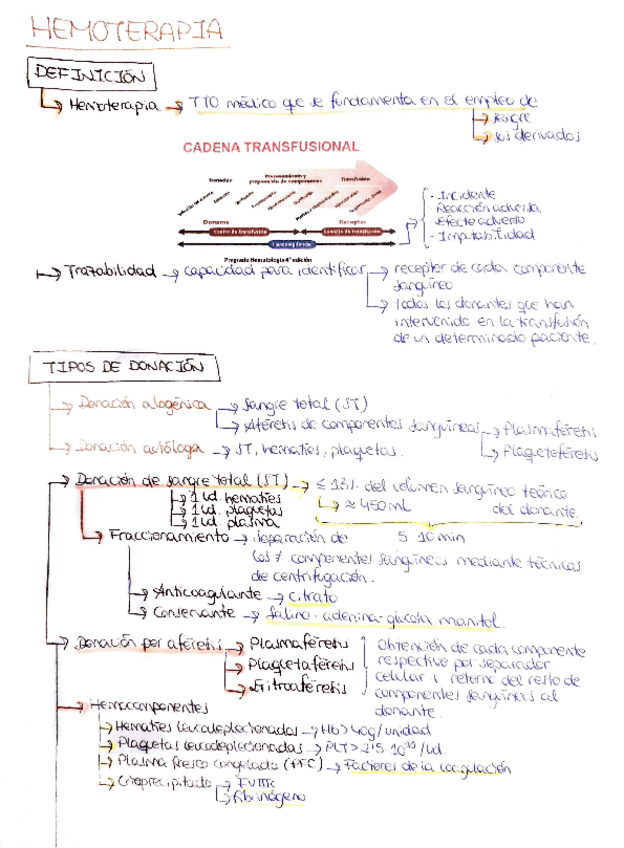 HEMOTERAPIA
DEFINICIÓN
Hemoterapia → TTO médico que se fundamenta en el empleo de
→ sangre
→ sus derivados
CADENA TRANSFUSIONAL
Donación
Procesamiento y preparación de componentes
Transfusión
Donante
Receptor
Centro de transfusión
Servicio de transfusión
Pregrado Hematología 4ª edición
- Incidente
Reacción adversa
Efecto adverso
- Imputabilidad
Trazabilidad → capacidad para identificar → receptor de cada componente
sanguíneo
→ todos los donantes que han
intervenido en la transfusión
de un determinado paciente.
TIPOS DE DONACIÓN
→ Donación alogénica → Sangre total (ST)
→ Aféresis de componentes sanguíneos → Plasmaféresis
→ Plaquetoféresis
→ Donación autóloga → ST, hematíes, plaquetas.
→ Donación de sangre total (ST) → ≤ 13% del volumen sanguíneo teórico
del donante.
→ ≈ 450 mL
→ 1 Ud. hematíes
→ 1 Ud. plaquetas
→ 1 Ud. plasma
5 10 min
→ Fraccionamiento → Separación de
los ≠ componentes sanguíneos mediante técnicas
de centrifugación.
→ Anticoagulante → citrato
→ Conservante → Salino-adenina-glucosa manitol.
→ Donación por aféresis → Plasmaféresis
→ Plaquetaféresis
→ Eritroaféresis
Obtención de cada componente
respectivo por separador
celular i retorno del resto de
componentes sanguíneos al
donante.
→ Hemocomponentes
→ Hematíes leucodeplecionados → Hb > 40g/unidad
→ Plaquetas leucodeplecionadas → PLT > 2'5 10¹¹/Ud.
→ Plasma fresco congelado (PFC) → Factores de la coagulación
→ Crioprecipitado → FVIIIc
→ fibrinógeno